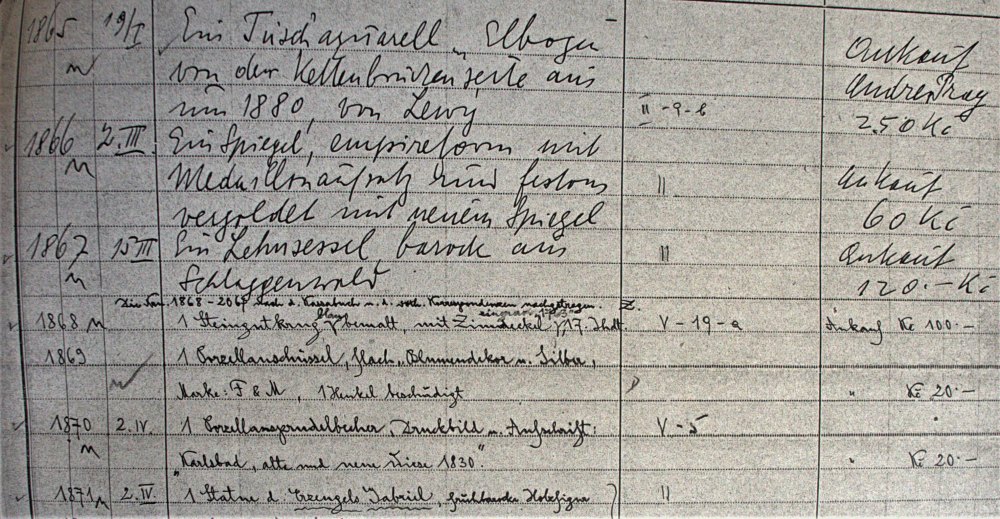 1865 19/I Ein Tuschaquarell „Elbogen
von der Kettenbrückenseite aus Ankauf
um 1880, von Lewy II-9-b Andree Prag
250 Kč
1866 2.III. Ein Spiegel, empireform mit
Medaillonaufsatz und festons II Ankauf
vergoldet mit neuem Spiegel 60 Kč
1867 15 III Ein Lehnsessel, barock aus II Ankauf
Schlaggenwald 120.- Kč
Die Nr. 1868-2069 nach d. Kassabuch u. d. vorh. Korrespondenzen nachgetragen. Z.
1868 1 Steingutkrug blau bemalt, mit Zinndeckel, 17. Jhdt. V-19-a Ankauf Kč 100.-
1869 1 Porzellanschüssel, flach, Blumendekor u. Silber,
Marke: F & M, 1 Henkel beschädigt. " Kč 20.-
1870 2.IV. 1 Porzellansprudelbecher, Druckbild u. Aufschrift: V-5
„Karlsbad, alte und neue Wiese 1830". " Kč 20.-
1871 2.IV 1 Statue d. Erzengels Gabriel, frühbarocke Holzfigur II